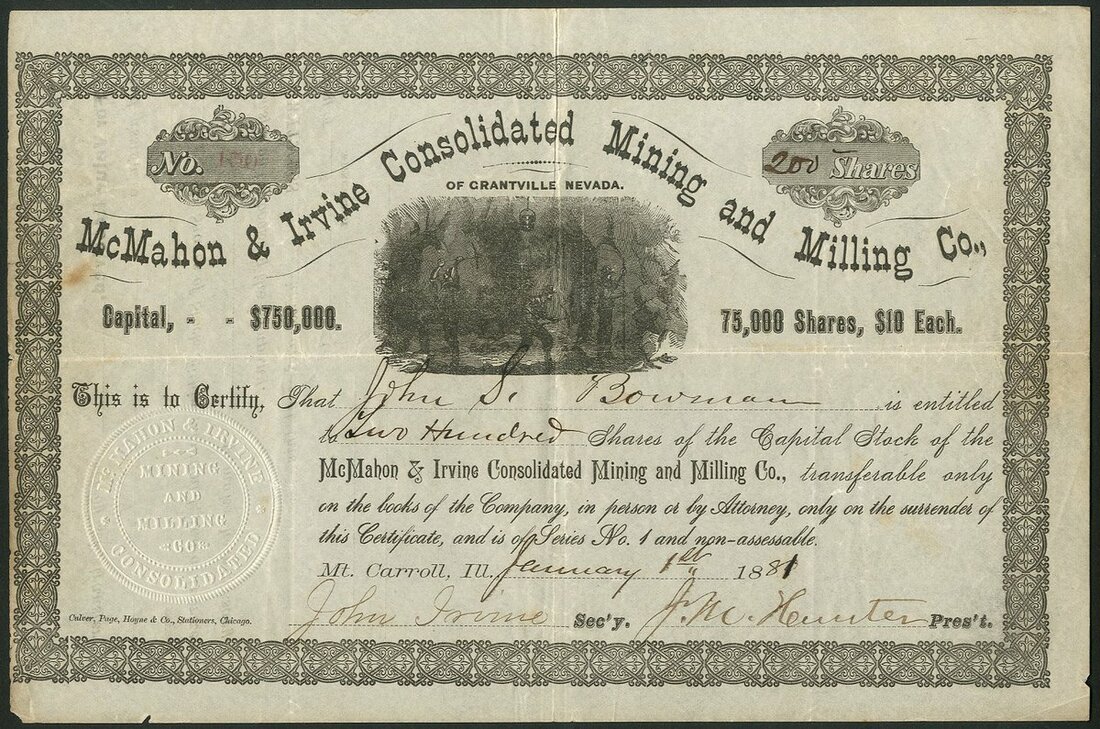 No.
200 Shares
McMahon & Irvine Consolidated Mining and Milling Co.,
OF GRANTVILLE NEVADA.
Capital, - - $750,000.
75,000 Shares, $10 Each.
This is to Certify, That John S. Bowman is entitled
to Two Hundred Shares of the Capital Stock of the
McMahon & Irvine Consolidated Mining and Milling Co., transferable only
on the books of the Company, in person or by Attorney, only on the surrender of
this Certificate, and is of Series No. 1 and non-assessable.
Mt. Carroll, Ill. January 1st 1881
John Irvine Sec'y. J. M. Hunter Pres't.
McMAHON & IRVINE
CONSOLIDATED
MINING
AND
MILLING
CO
Culver, Page, Hoyne & Co., Stationers, Chicago.